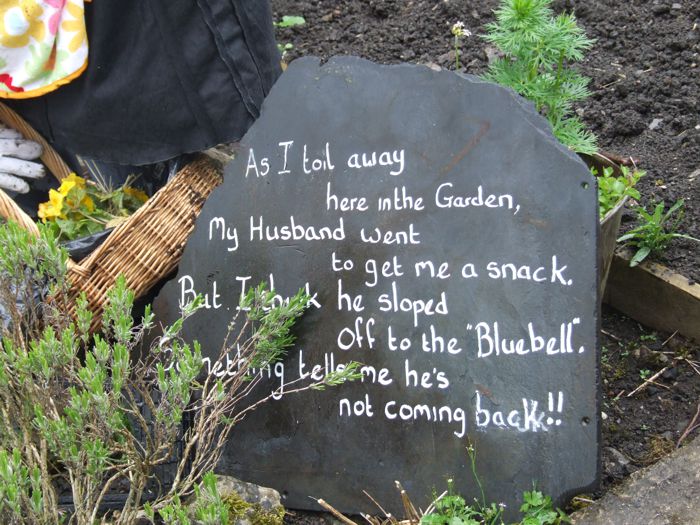 As I toil away
here in the Garden,
My Husband went
to get me a snack.
But I think he sloped
Off to the "Bluebell".
Something tells me he's
not coming back!!